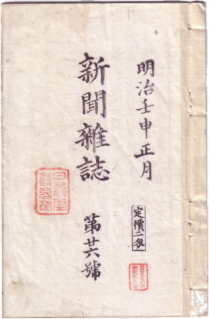 明治壬申正月
定價二匁
新聞雜誌
第廿六號